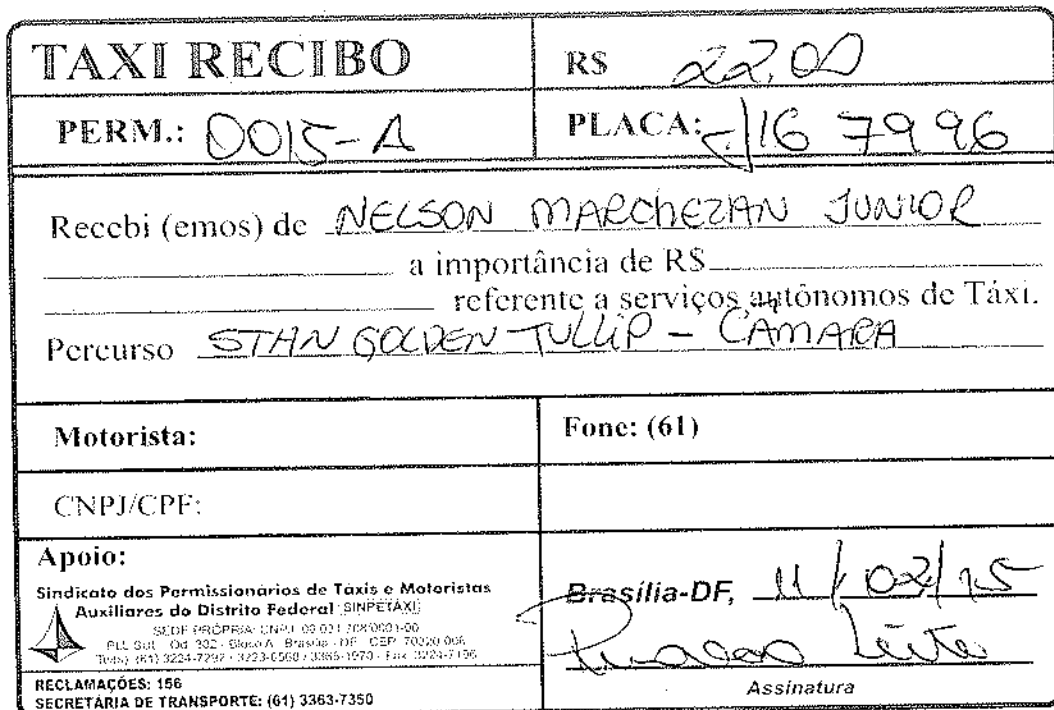 TAXI RECIBO
R$ 22,00
PERM.: 0015-A
PLACA: 7996
Recebi (emos) de NELSON MARCHEZAN JUNIOR
a importância de R$
referente a serviços autônomos de Táxi.
Percurso STAN GOLDEN TULLIP - CÂMARA
Motorista:
Fone: (61)
CNPJ/CPF:
Apoio:
Sindicato dos Permissionários de Táxis e Motoristas
Auxiliares do Distrito Federal SINPETAXI
SEDE PRÓPRIA: CNPJ:
Brasília - DF - CEP:
RECLAMAÇÕES: 156
SECRETÁRIA DE TRANSPORTE: (61) 3363-7350
Brasília-DF, 11/02/15
Assinatura